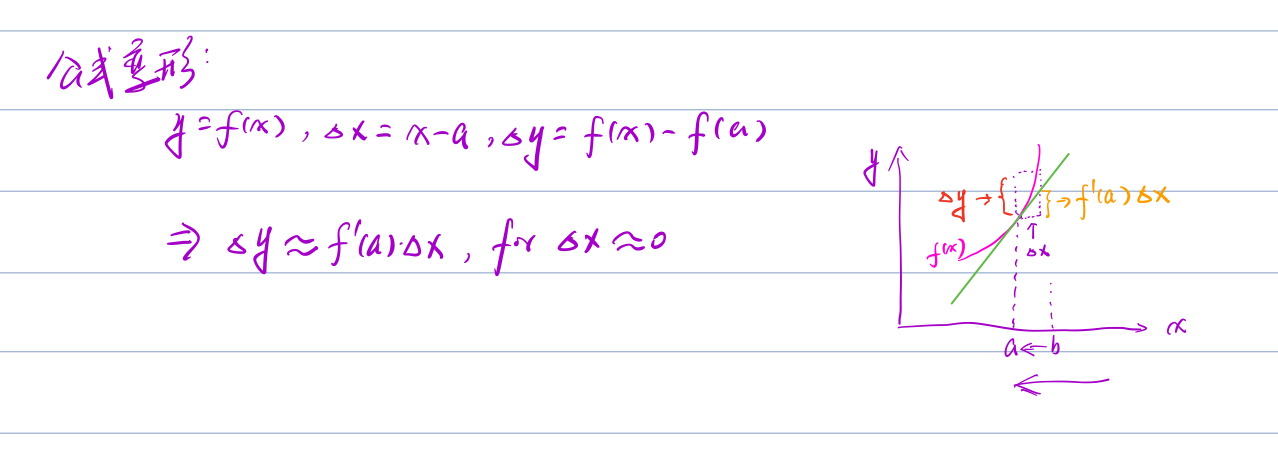 公式变形:
y=f(x), Δx=x-a, Δy=f(x)-f(a)
⇒ Δy≈f'(a)·Δx, for Δx≈0
y
Δy→{ }→f'(a)Δx
f(x) ↑
Δx
x
a←b
←